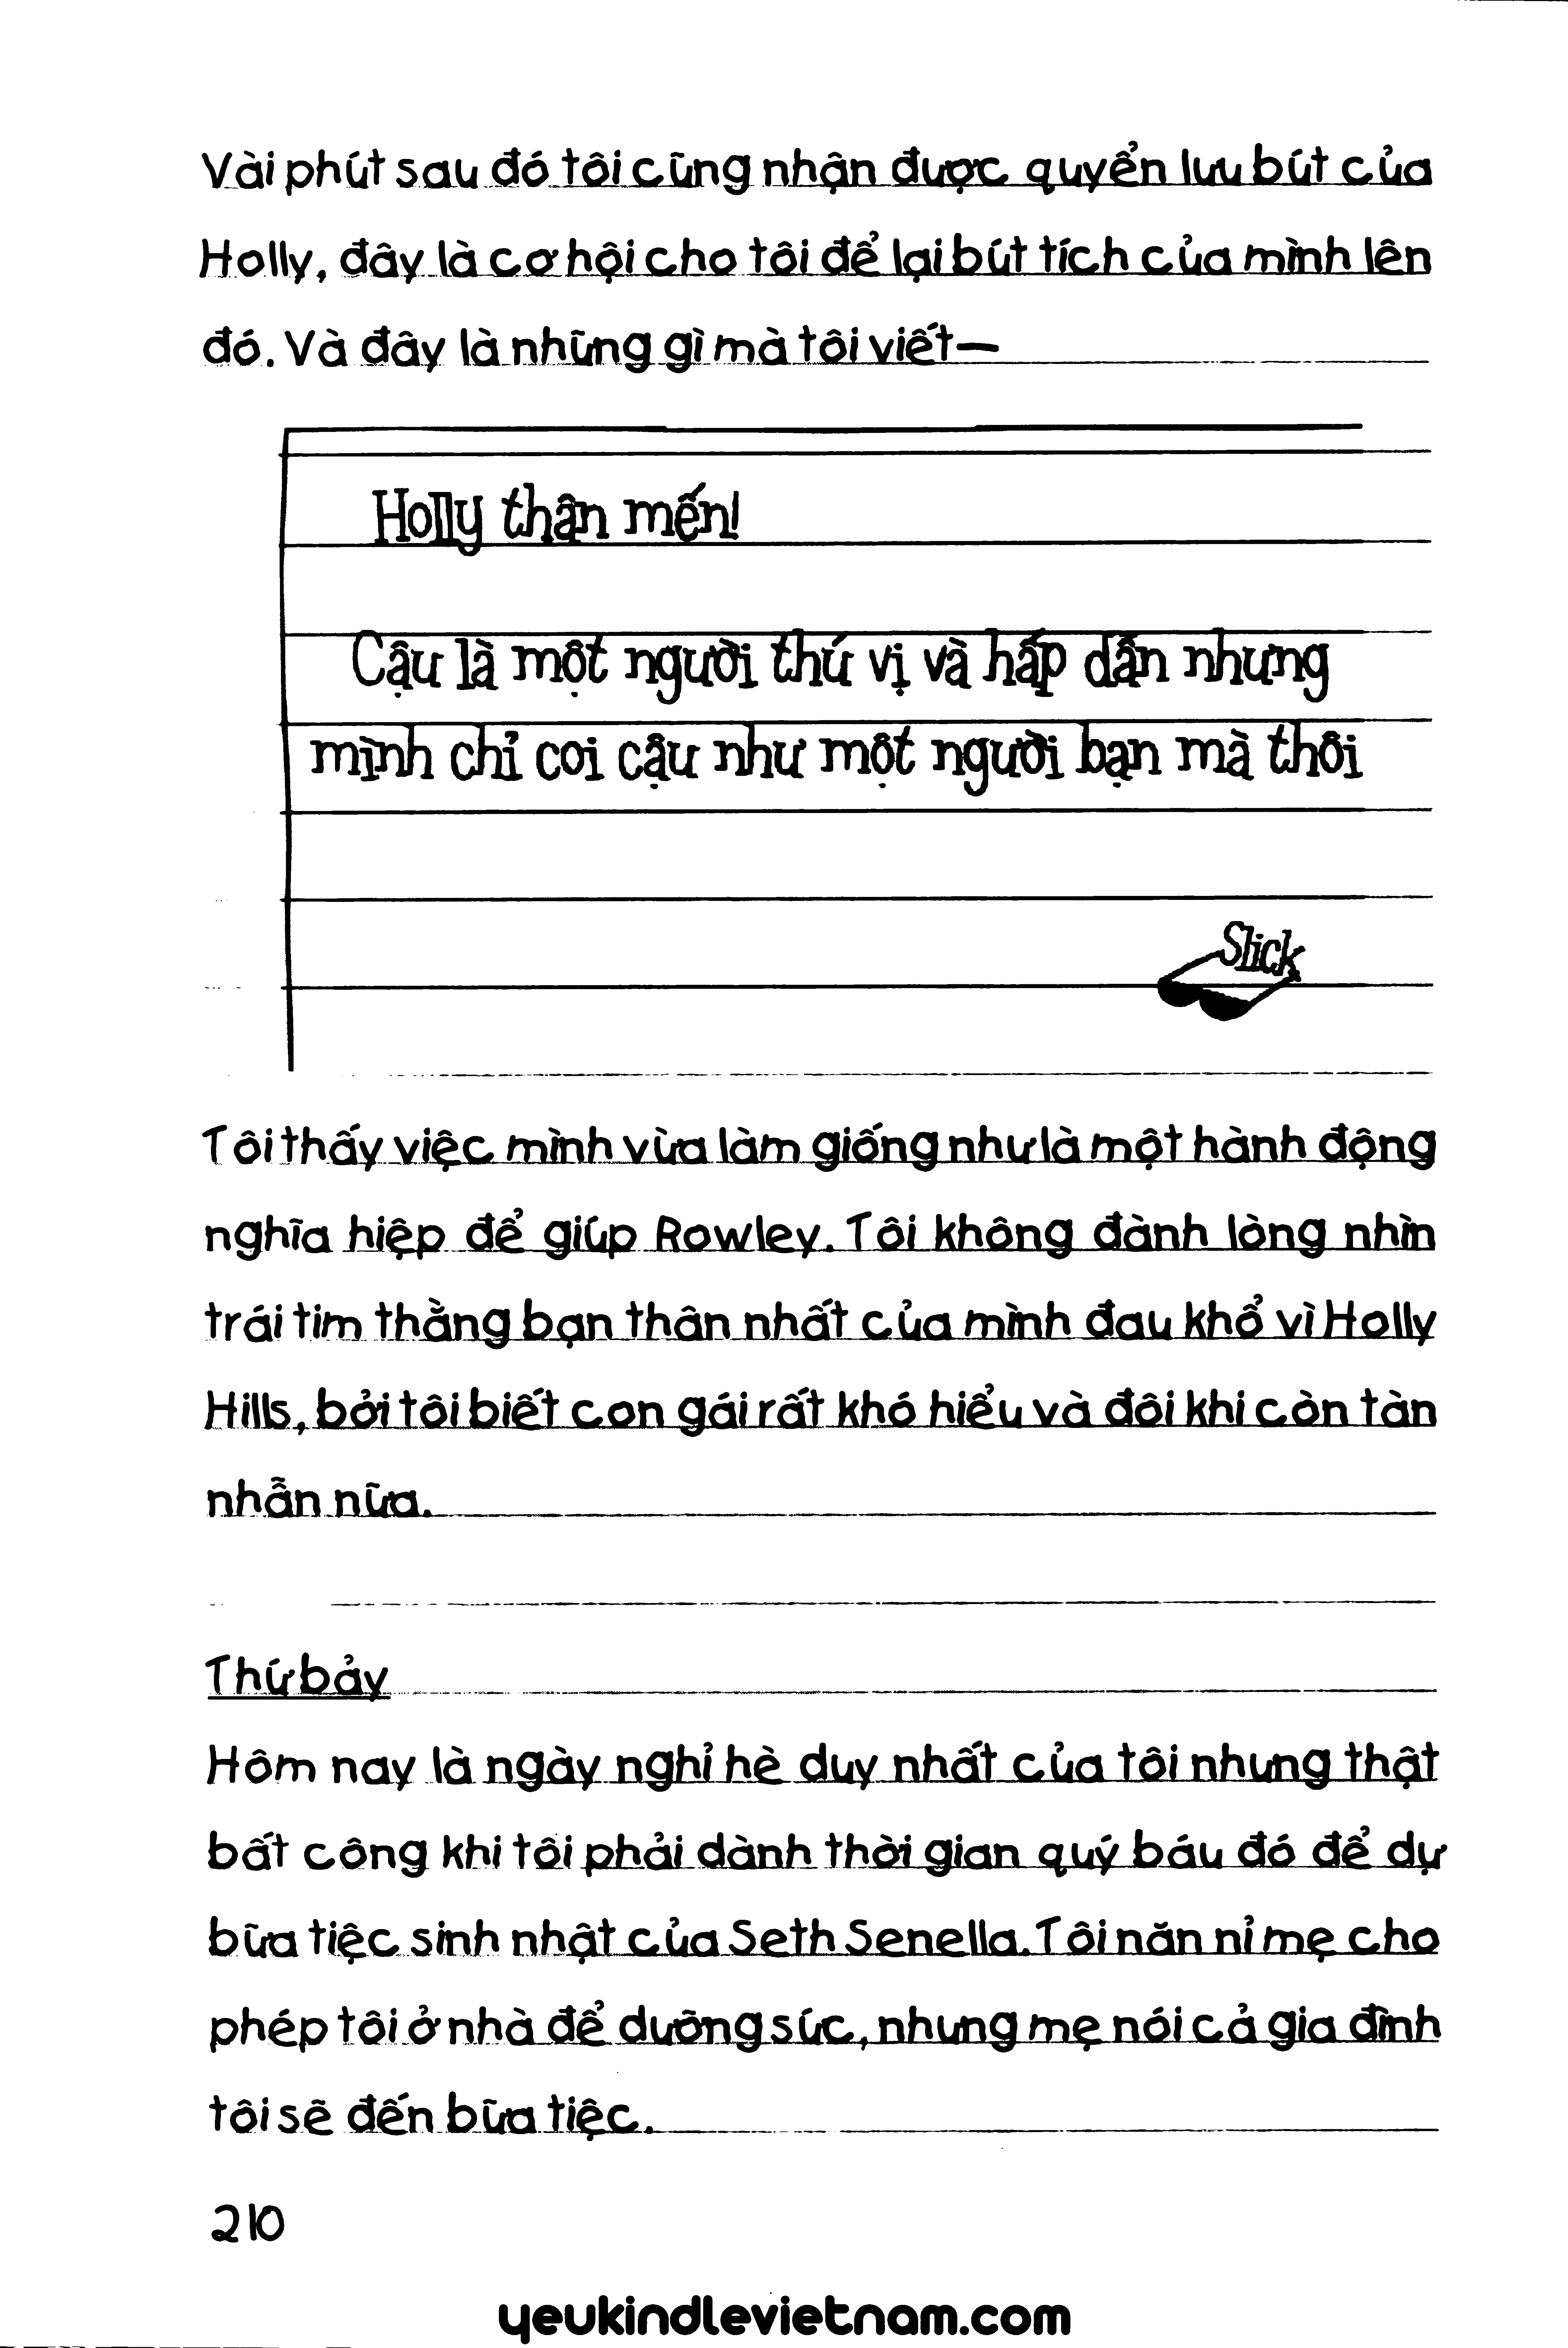 Vài phút sau đó tôi cũng nhận được quyển lưu bút của
Holly, đây là cơ hội cho tôi để lại bút tích của mình lên
đó. Và đây là những gì mà tôi viết—
Holly thân mến!
Cậu là một người thú vị và hấp dẫn nhưng
mình chỉ coi cậu như một người bạn mà thôi
Slick
Tôi thấy việc mình vừa làm giống như là một hành động
nghĩa hiệp để giúp Rowley. Tôi không đành lòng nhìn
trái tim thằng bạn thân nhất của mình đau khổ vì Holly
Hills, bởi tôi biết con gái rất khó hiểu và đôi khi còn tàn
nhẫn nữa.
Thứ bảy
Hôm nay là ngày nghỉ hè duy nhất của tôi nhưng thật
bất công khi tôi phải dành thời gian quý báu đó để dự
bữa tiệc sinh nhật của Seth Senella. Tôi năn nỉ mẹ cho
phép tôi ở nhà để dưỡng sức, nhưng mẹ nói cả gia đình
tôi sẽ đến bữa tiệc.
210
yeukindlevietnam.com